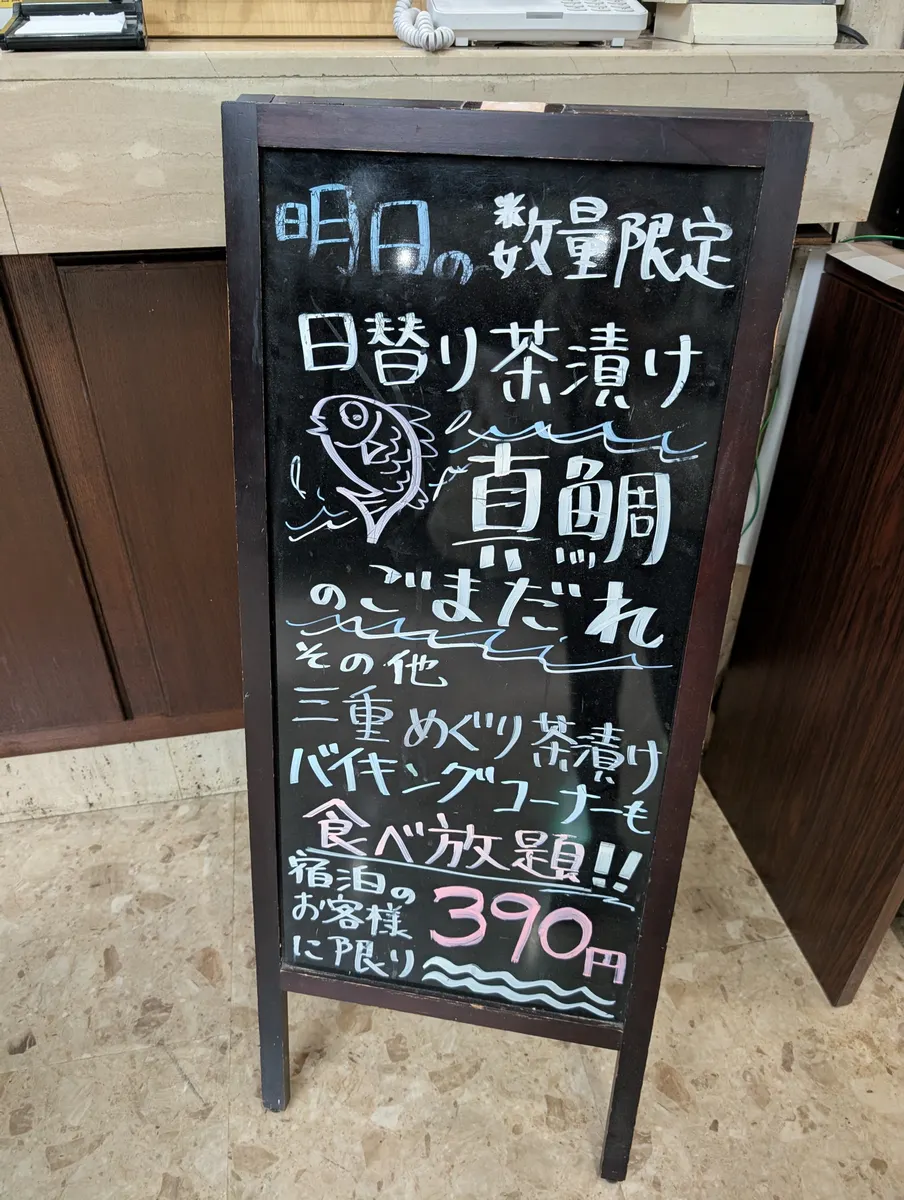 明日の ※数量限定
日替り茶漬け
真鯛
のごまだれ
その他
三重めぐり茶漬け
バイキングコーナーも
食べ放題!!
宿泊の
お客様
に限り
390円